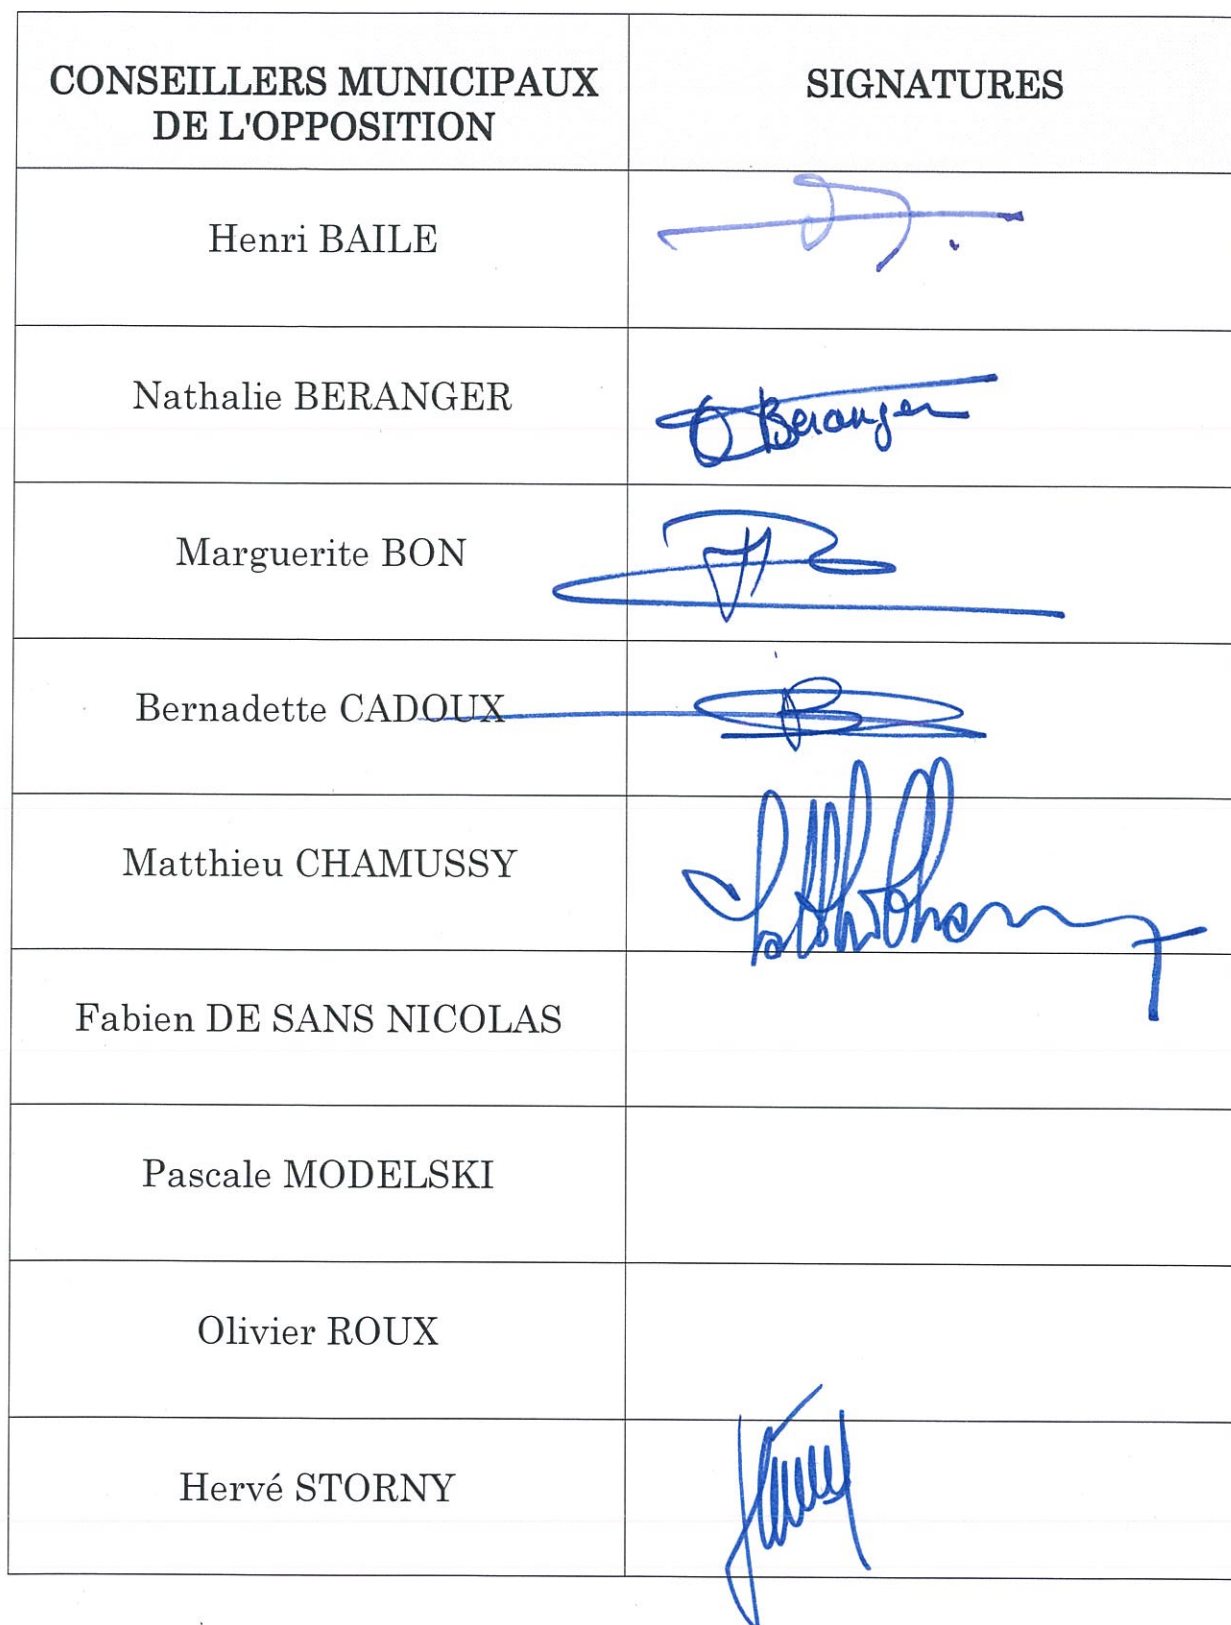 CONSEILLERS MUNICIPAUX
DE L'OPPOSITION
SIGNATURES
Henri BAILE
Nathalie BERANGER
Beranger
Marguerite BON
Bernadette CADOUX
Matthieu CHAMUSSY
Fabien DE SANS NICOLAS
Pascale MODELSKI
Olivier ROUX
Hervé STORNY